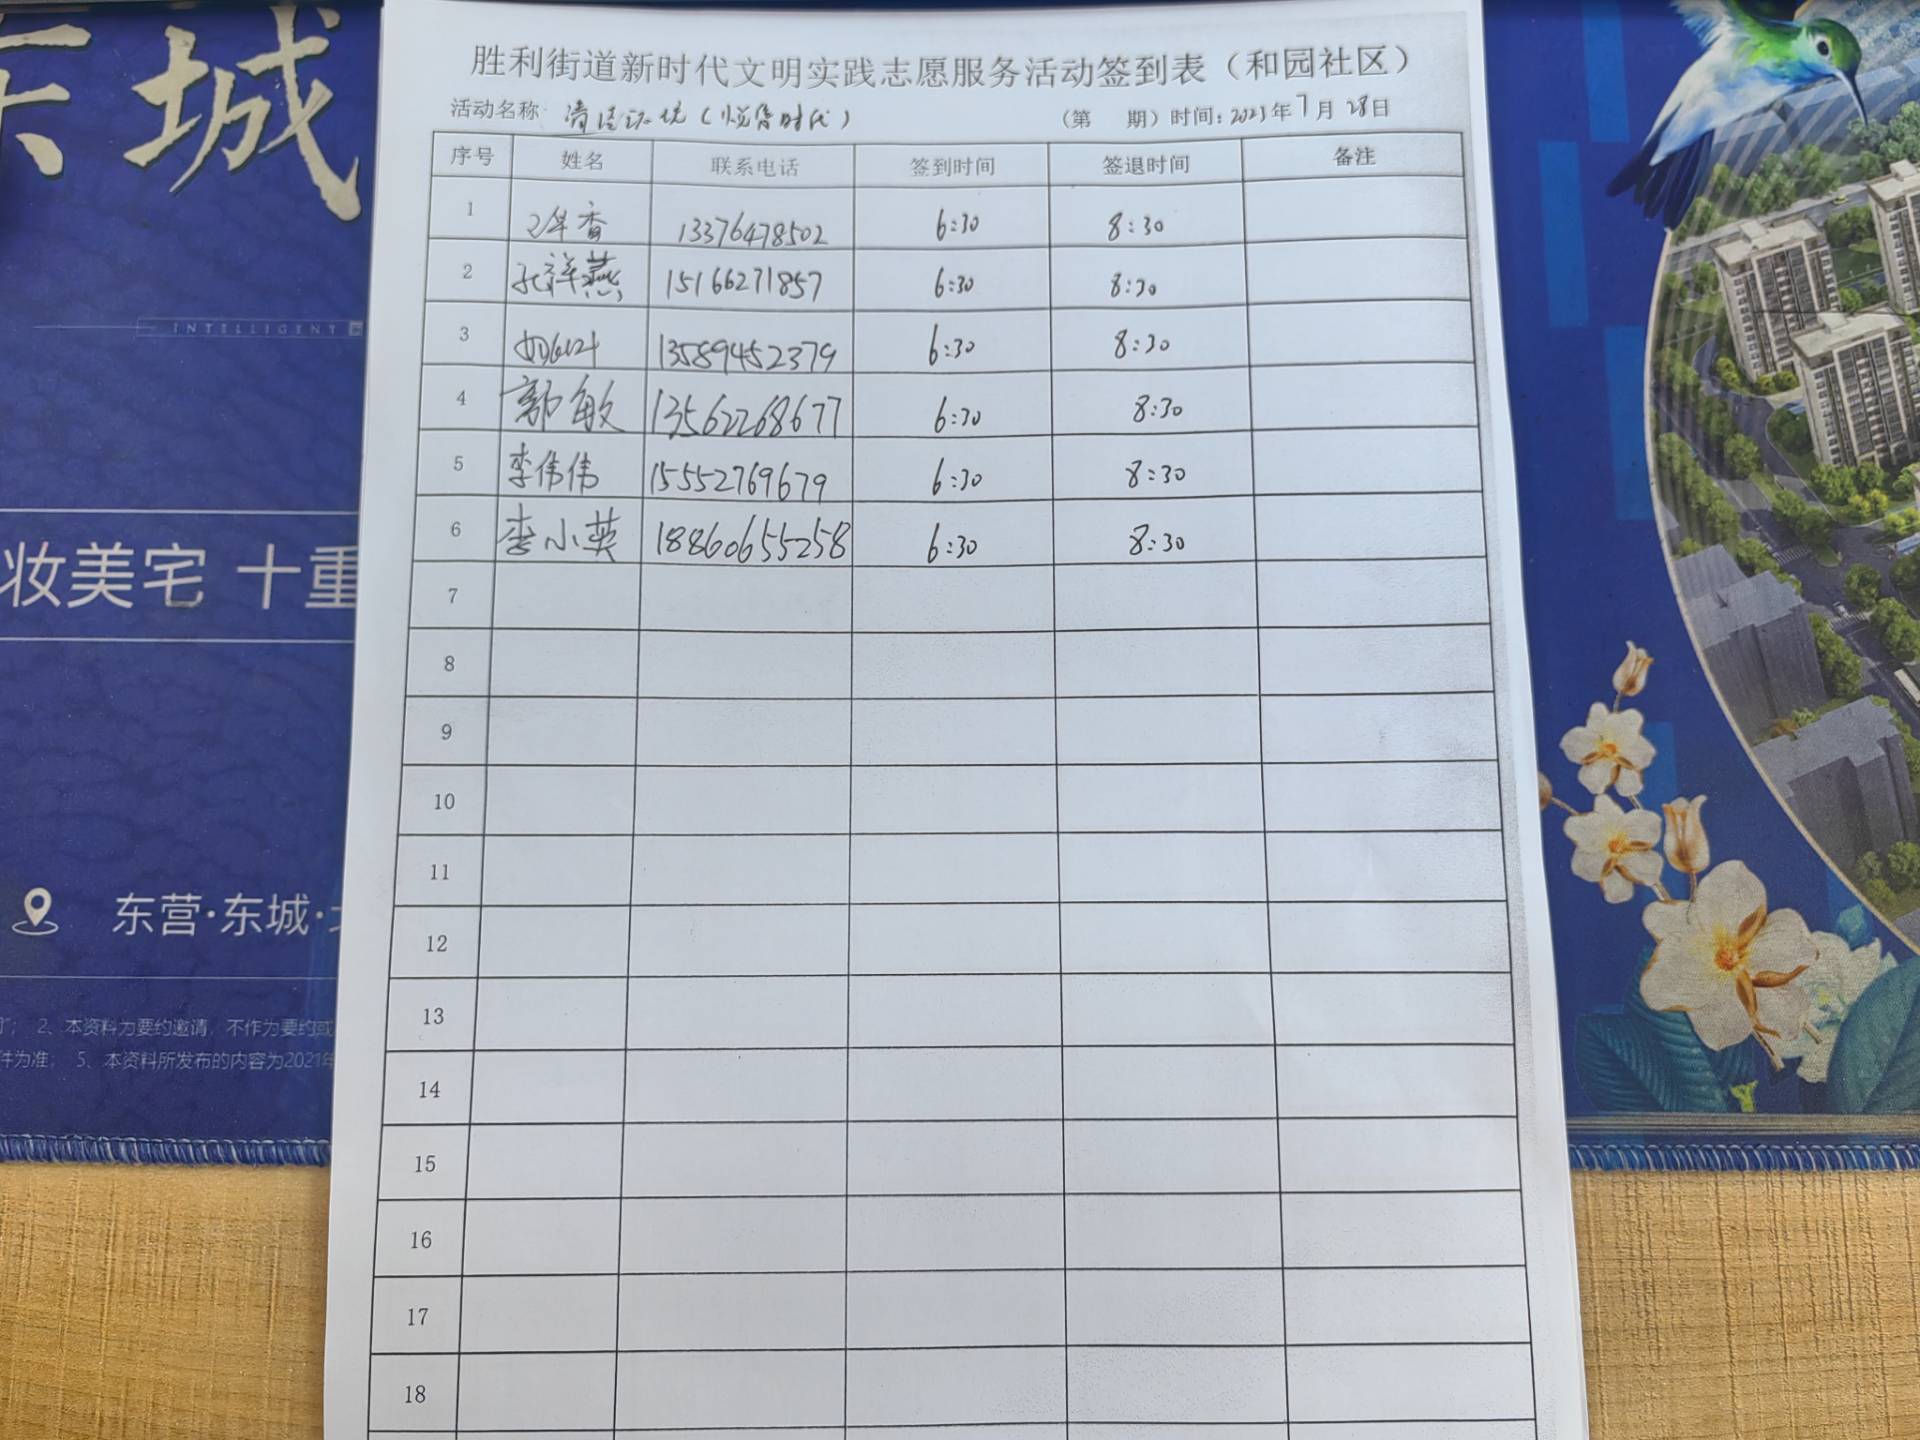 东城
INTELLIGENT
妆美宅 十重
东营·东城·
2、本资料为要约邀请，不作为要约或
件为准； 5、本资料所发布的内容为2021年
胜利街道新时代文明实践志愿服务活动签到表（和园社区）
活动名称 清洁环境（悦舍时代）
（第 期）时间：2023年7月28日
序号 姓名 联系电话 签到时间 签退时间 备注
1 香 13376478502 6:30 8:30
2 祥燕 15166271857 6:30 8:30
3 13589452379 6:30 8:30
4 郭敏 13562268677 6:30 8:30
5 李伟伟 15552769679 6:30 8:30
6 李小英 18860655258 6:30 8:30
7
8
9
10
11
12
13
14
15
16
17
18